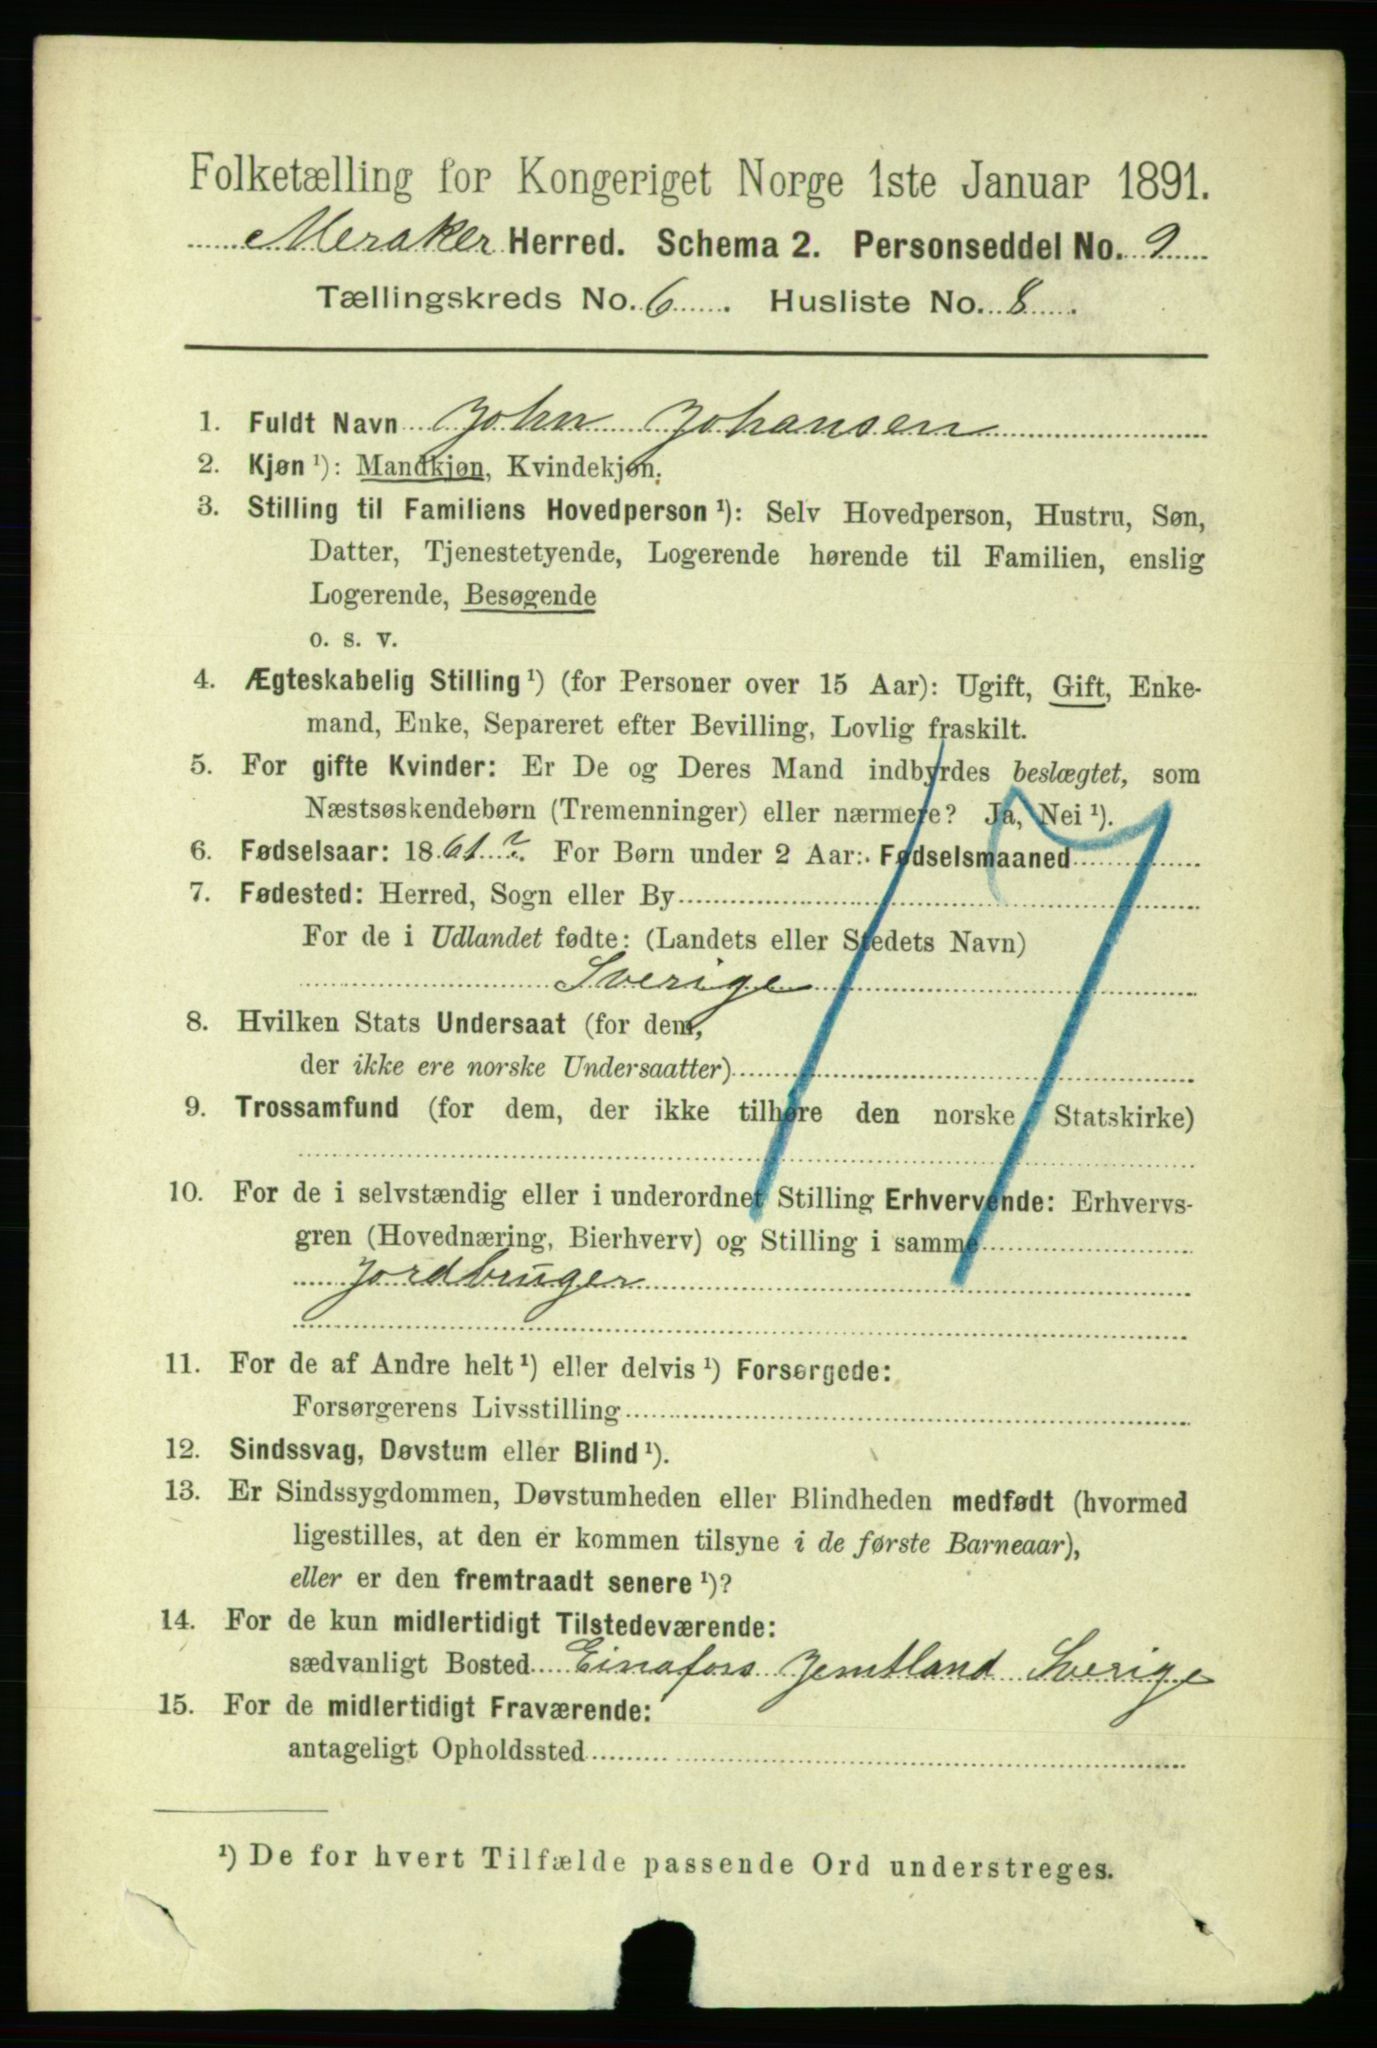 Folketælling for Kongeriget Norge 1ste Januar 1891.
Meraker Herred. Schema 2. Personseddel No. 9
Tællingskreds No. 6. Husliste No. 8.
1. Fuldt Navn John Johansen
2. Kjøn ¹): Mandkjøn, Kvindekjøn.
3. Stilling til Familiens Hovedperson ¹): Selv Hovedperson, Hustru, Søn,
Datter, Tjenestetyende, Logerende hørende til Familien, enslig
Logerende, Besøgende
o. s. v.
4. Ægteskabelig Stilling ¹) (for Personer over 15 Aar): Ugift, Gift, Enke-
mand, Enke, Separeret efter Bevilling, Lovlig fraskilt.
5. For gifte Kvinder: Er De og Deres Mand indbyrdes beslægtet, som
Næstsøskendebørn (Tremenninger) eller nærmere? Ja, Nei ¹).
6. Fødselsaar: 1861 ?. For Børn under 2 Aar: Fødselsmaaned
7. Fødested: Herred, Sogn eller By
For de i Udlandet fødte: (Landets eller Stedets Navn)
Sverige
8. Hvilken Stats Undersaat (for dem,
der ikke ere norske Undersaatter)
9. Trossamfund (for dem, der ikke tilhøre den norske Statskirke)
10. For de i selvstændig eller i underordnet Stilling Erhvervende: Erhvervs-
gren (Hovednæring, Bierhverv) og Stilling i samme
Jordbruger
11. For de af Andre helt ¹) eller delvis ¹) Forsørgede:
Forsørgerens Livsstilling
12. Sindssvag, Døvstum eller Blind ¹).
13. Er Sindssygdommen, Døvstumheden eller Blindheden medfødt (hvormed
ligestilles, at den er kommen tilsyne i de første Barneaar),
eller er den fremtraadt senere ¹)?
14. For de kun midlertidigt Tilstedeværende:
sædvanligt Bosted Einafors Jemtland Sverige
15. For de midlertidigt Fraværende:
antageligt Opholdssted
¹) De for hvert Tilfælde passende Ord understreges.